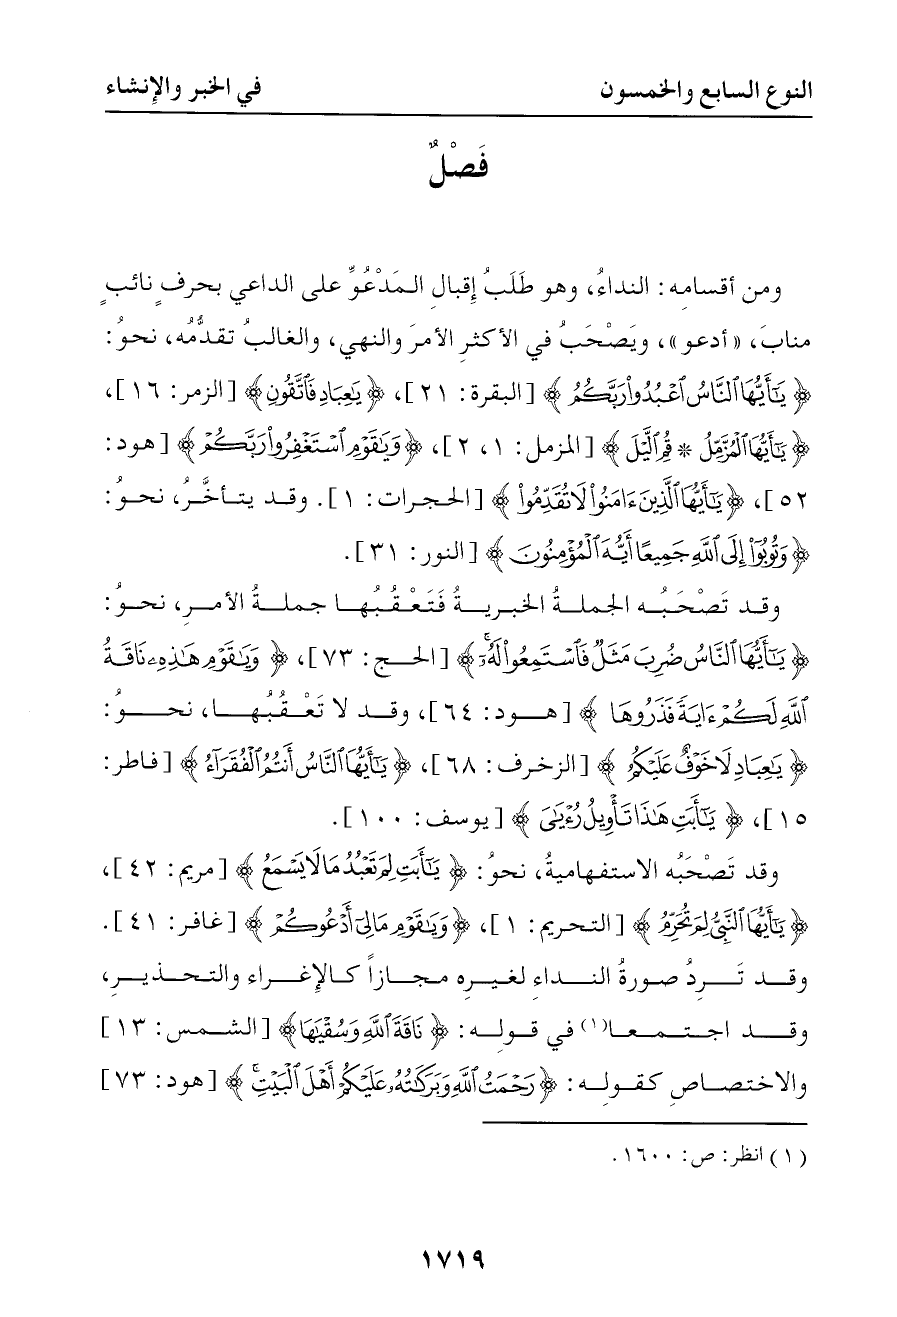 النوع السابع والخمسون في الخبر والإنشاء
فَصْلٌ
ومن أقسامه: النداءُ، وهو طَلَبُ إقبال المَدْعُوِّ على الداعي بحرفٍ نائبٍ
منابَ، «أدعو»، ويَصْحَبُ في الأكثرِ الأمرَ والنهي، والغالبُ تقدُّمُه، نحوُ:
﴿ يَـٰٓأَيُّهَا ٱلنَّاسُ ٱعْبُدُوا۟ رَبَّكُمُ ﴾ [البقرة: ٢١]، ﴿ يَـٰعِبَادِ فَٱتَّقُونِ ﴾ [الزمر: ١٦]،
﴿ يَـٰٓأَيُّهَا ٱلْمُزَّمِّلُ * قُمِ ٱلَّيْلَ ﴾ [المزمل: ١، ٢]، ﴿ وَيَـٰقَوْمِ ٱسْتَغْفِرُوا۟ رَبَّكُمْ ﴾ [هود:
٥٢]، ﴿ يَـٰٓأَيُّهَا ٱلَّذِينَ ءَامَنُوا۟ لَا تُقَدِّمُوا۟ ﴾ [الحجرات: ١]. وقد يتأخَّرُ، نحوُ:
﴿ وَتُوبُوٓا۟ إِلَى ٱللَّهِ جَمِيعًا أَيُّهَ ٱلْمُؤْمِنُونَ ﴾ [النور: ٣١].
وقد تَصْحَبُه الجملةُ الخبريةُ فَتَعْقُبُها جملةُ الأمرِ، نحوُ:
﴿ يَـٰٓأَيُّهَا ٱلنَّاسُ ضُرِبَ مَثَلٌ فَٱسْتَمِعُوا۟ لَهُۥٓ ﴾ [الحج: ٧٣]، ﴿ وَيَـٰقَوْمِ هَـٰذِهِۦ نَاقَةُ
ٱللَّهِ لَكُمْ ءَايَةً فَذَرُوهَا ﴾ [هود: ٦٤]، وقد لا تَعْقُبُها، نحوُ:
﴿ يَـٰعِبَادِ لَا خَوْفٌ عَلَيْكُمُ ﴾ [الزخرف: ٦٨]، ﴿ يَـٰٓأَيُّهَا ٱلنَّاسُ أَنتُمُ ٱلْفُقَرَآءُ ﴾ [فاطر:
١٥]، ﴿ يَـٰٓأَبَتِ هَـٰذَا تَأْوِيلُ رُءْيَـٰىَ ﴾ [يوسف: ١٠٠].
وقد تَصْحَبُه الاستفهاميةُ، نحوُ: ﴿ يَـٰٓأَبَتِ لِمَ تَعْبُدُ مَا لَا يَسْمَعُ ﴾ [مريم: ٤٢]،
﴿ يَـٰٓأَيُّهَا ٱلنَّبِىُّ لِمَ تُحَرِّمُ ﴾ [التحريم: ١]، ﴿ وَيَـٰقَوْمِ مَا لِىٓ أَدْعُوكُمْ ﴾ [غافر: ٤١].
وقد تَرِدُ صورةُ النداءِ لغيرِه مجازاً كالإغراء والتحذيرِ،
وقد اجتمعا(١) في قولِه: ﴿ نَاقَةَ ٱللَّهِ وَسُقْيَـٰهَا ﴾ [الشمس: ١٣]
والاختصاصِ كقولِه: ﴿ رَحْمَتُ ٱللَّهِ وَبَرَكَـٰتُهُۥ عَلَيْكُمْ أَهْلَ ٱلْبَيْتِ ﴾ [هود: ٧٣]
(١) انظر: ص: ١٦٠٠.
١٧١٩